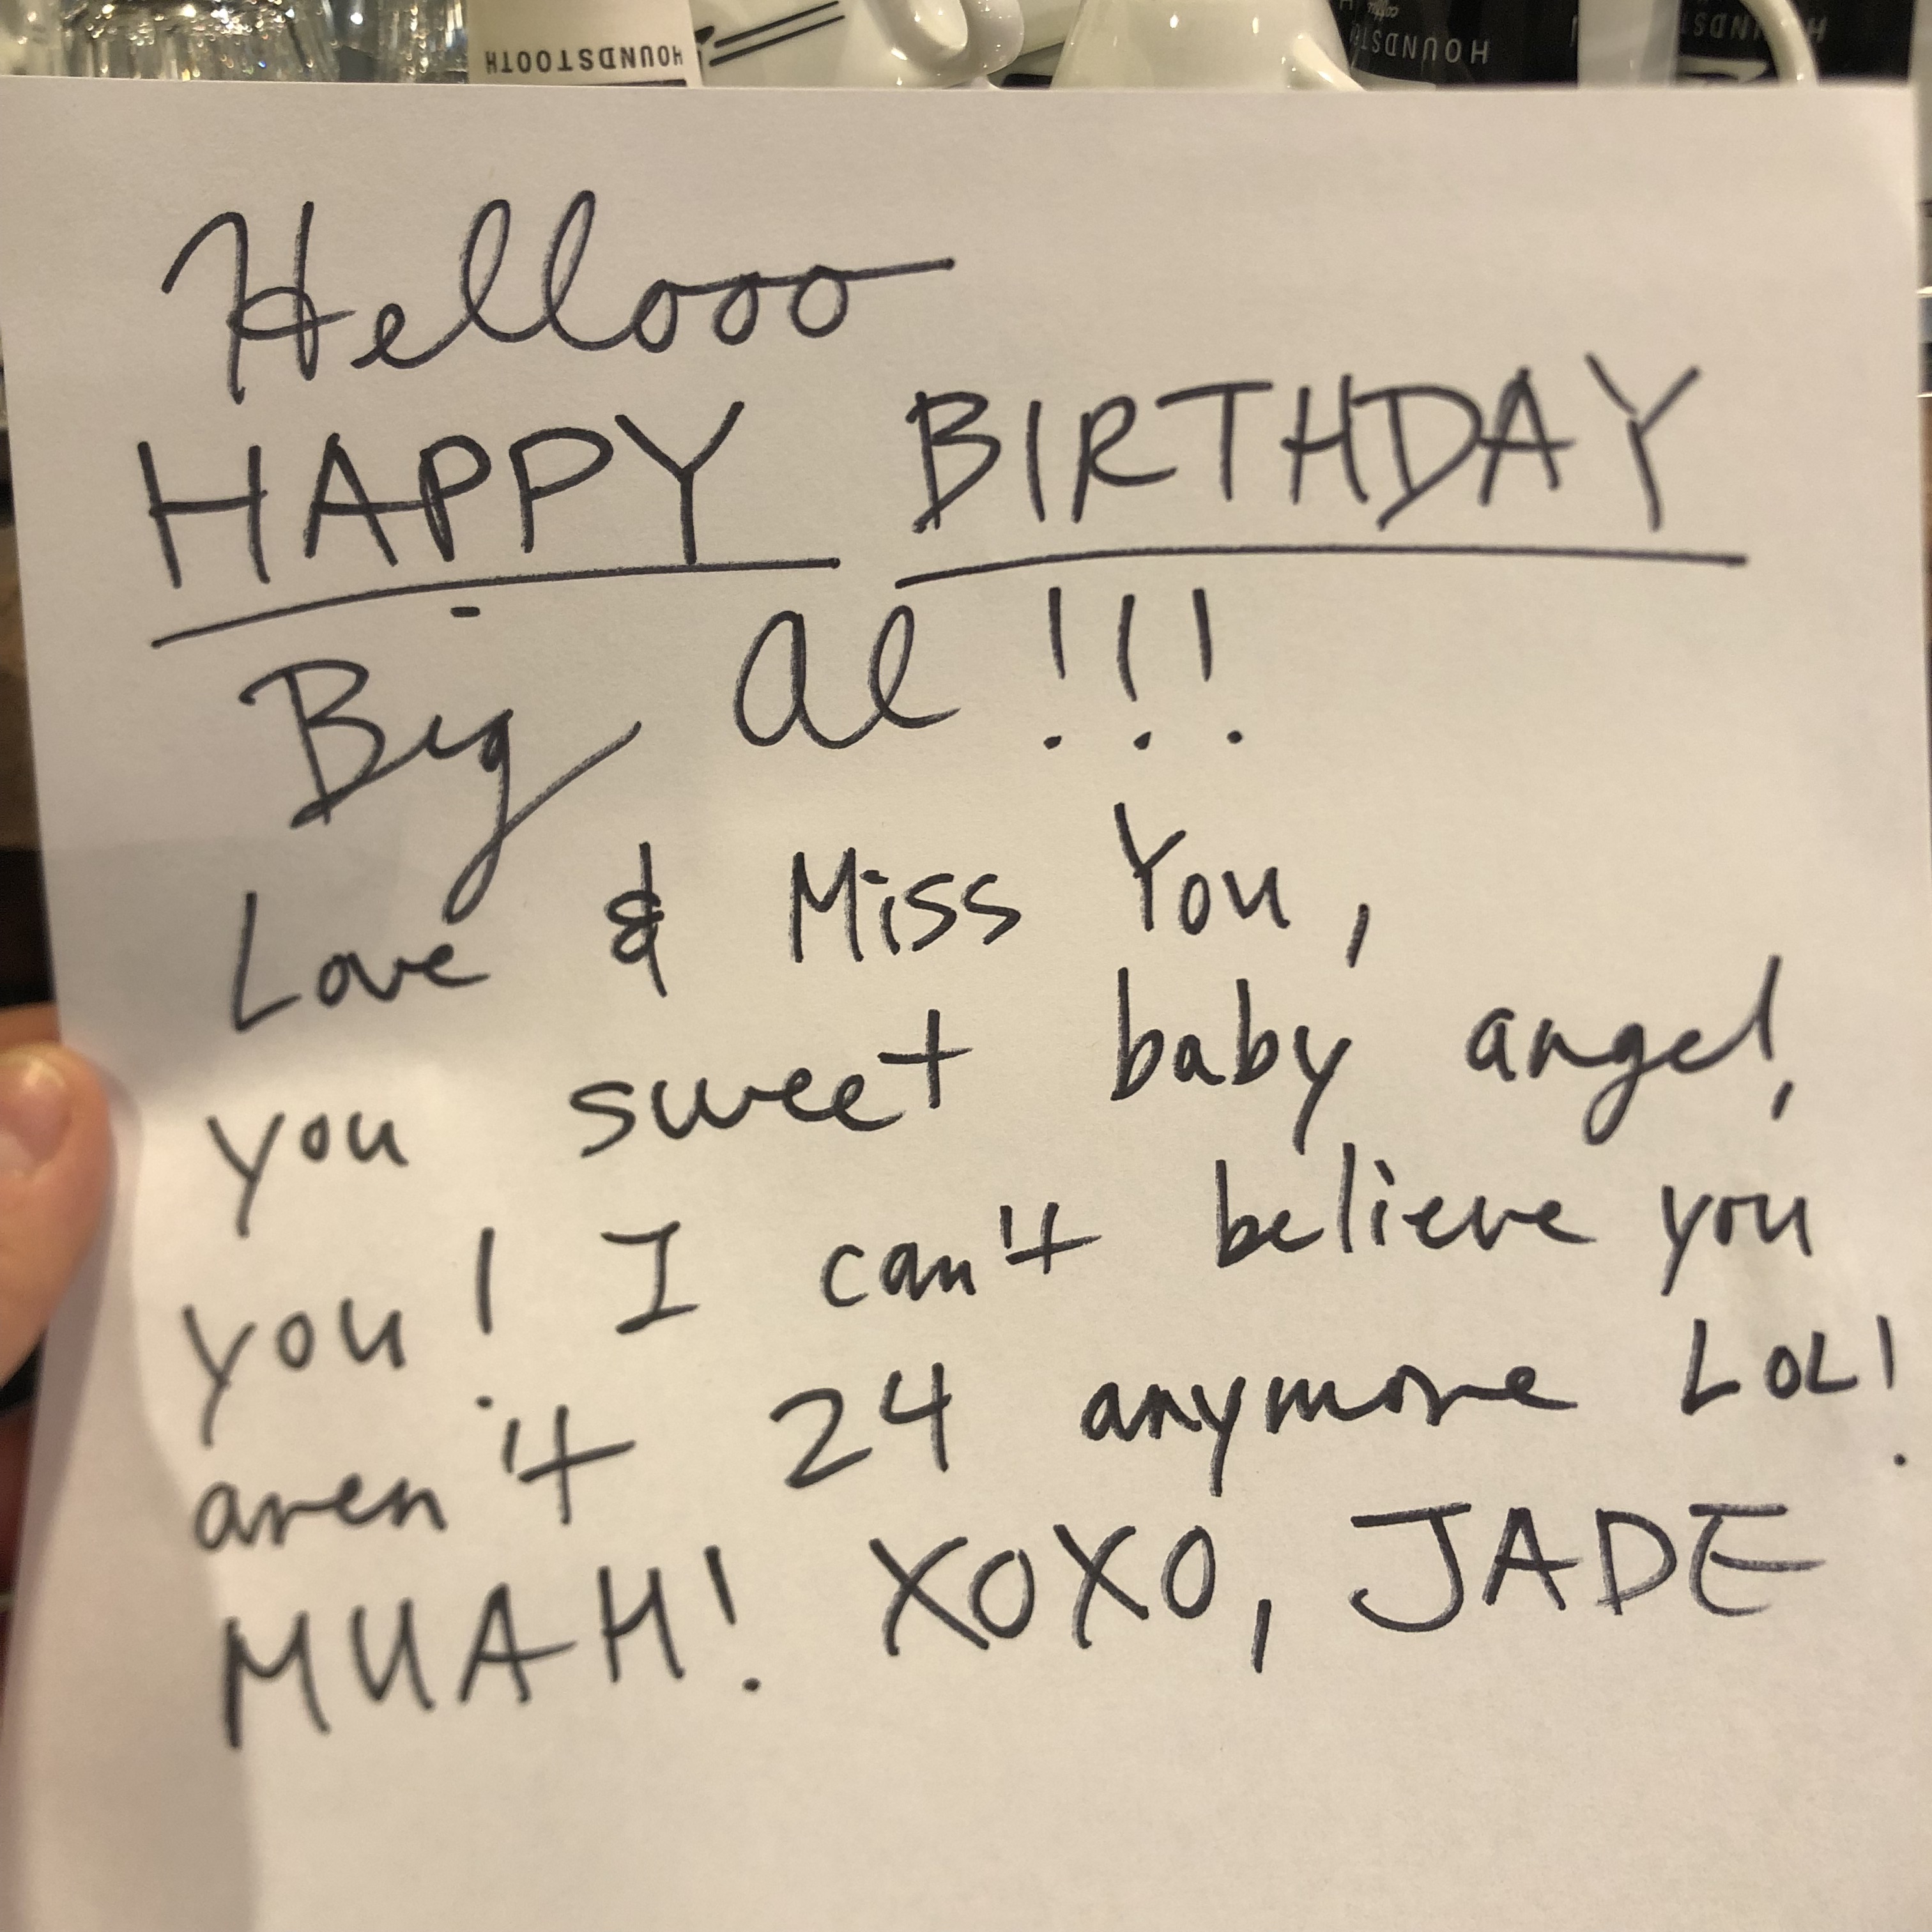 HOUNDSTOOTH
coffee
HOUNDSTO
HOUNDST
Hellooo
HAPPY BIRTHDAY
Big Al!!!
Love & Miss You,
you sweet baby angel,
you! I can't believe you
aren't 24 anymore LOL!
MUAH! XOXO, JADE